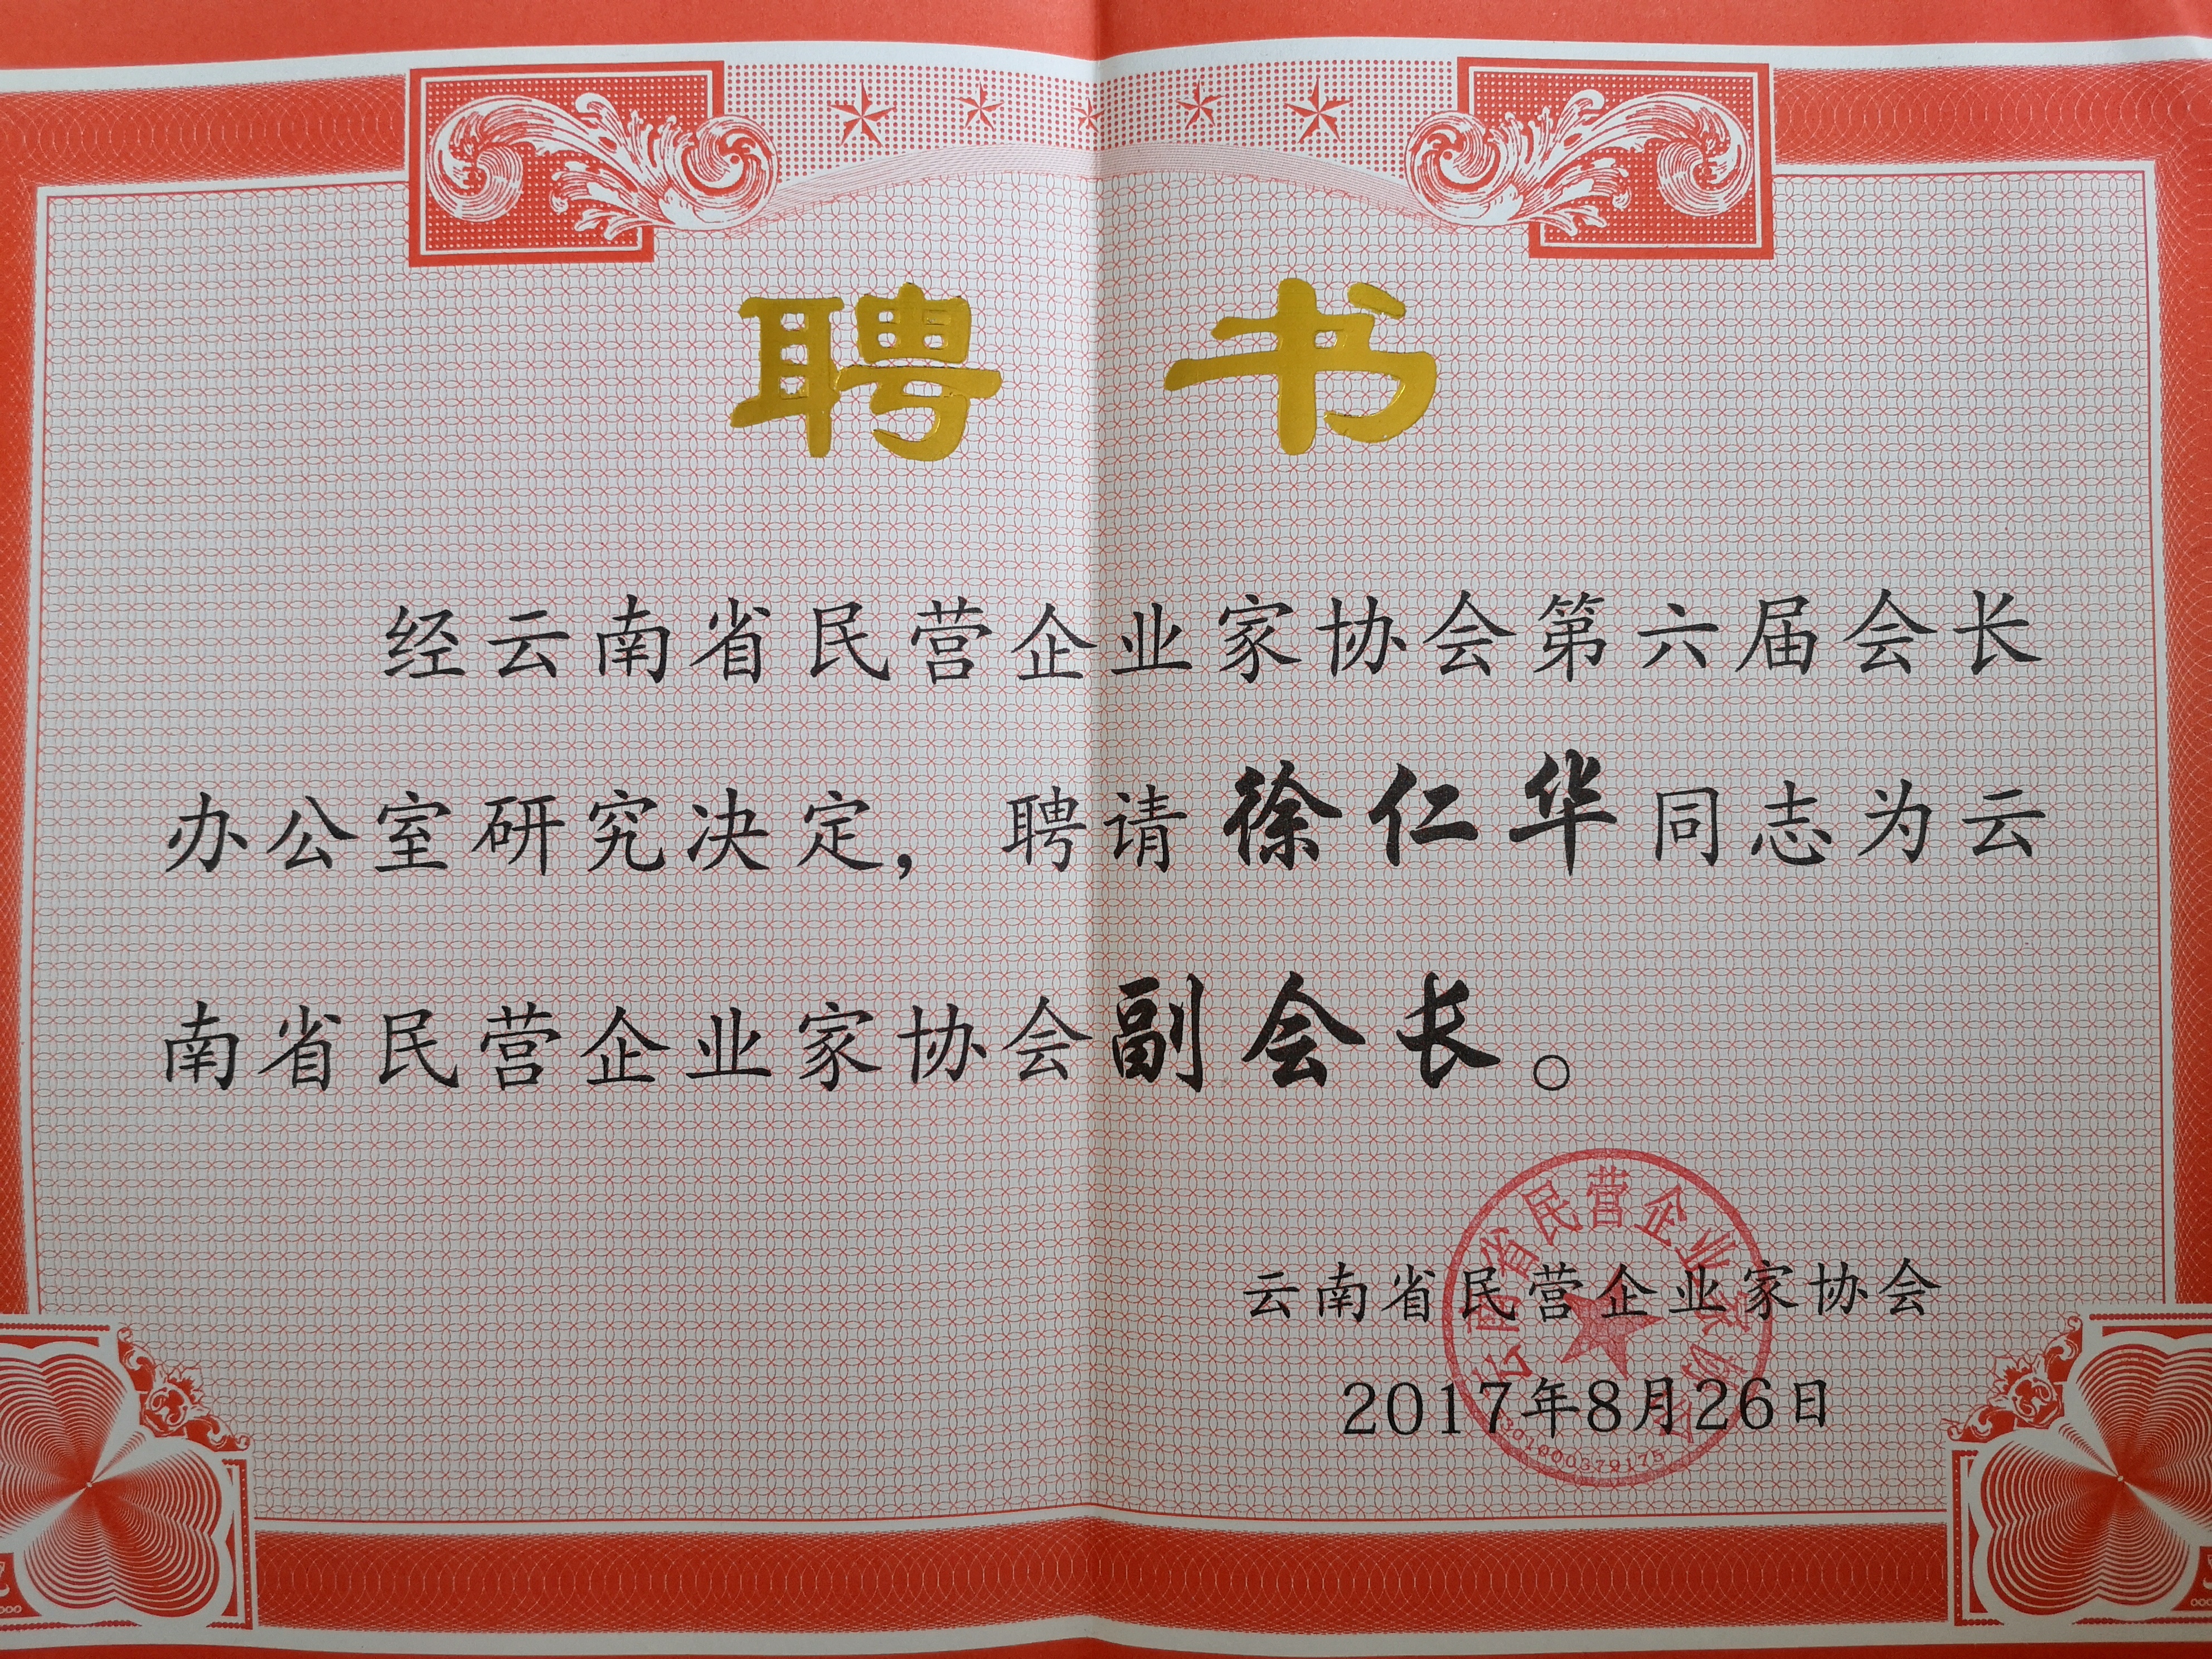 聘书
经云南省民营企业家协会第六届会长
办公室研究决定，聘请徐仁华同志为云
南省民营企业家协会副会长。
云南省民营企业家协会
2017年8月26日
云南省民营企业家协会